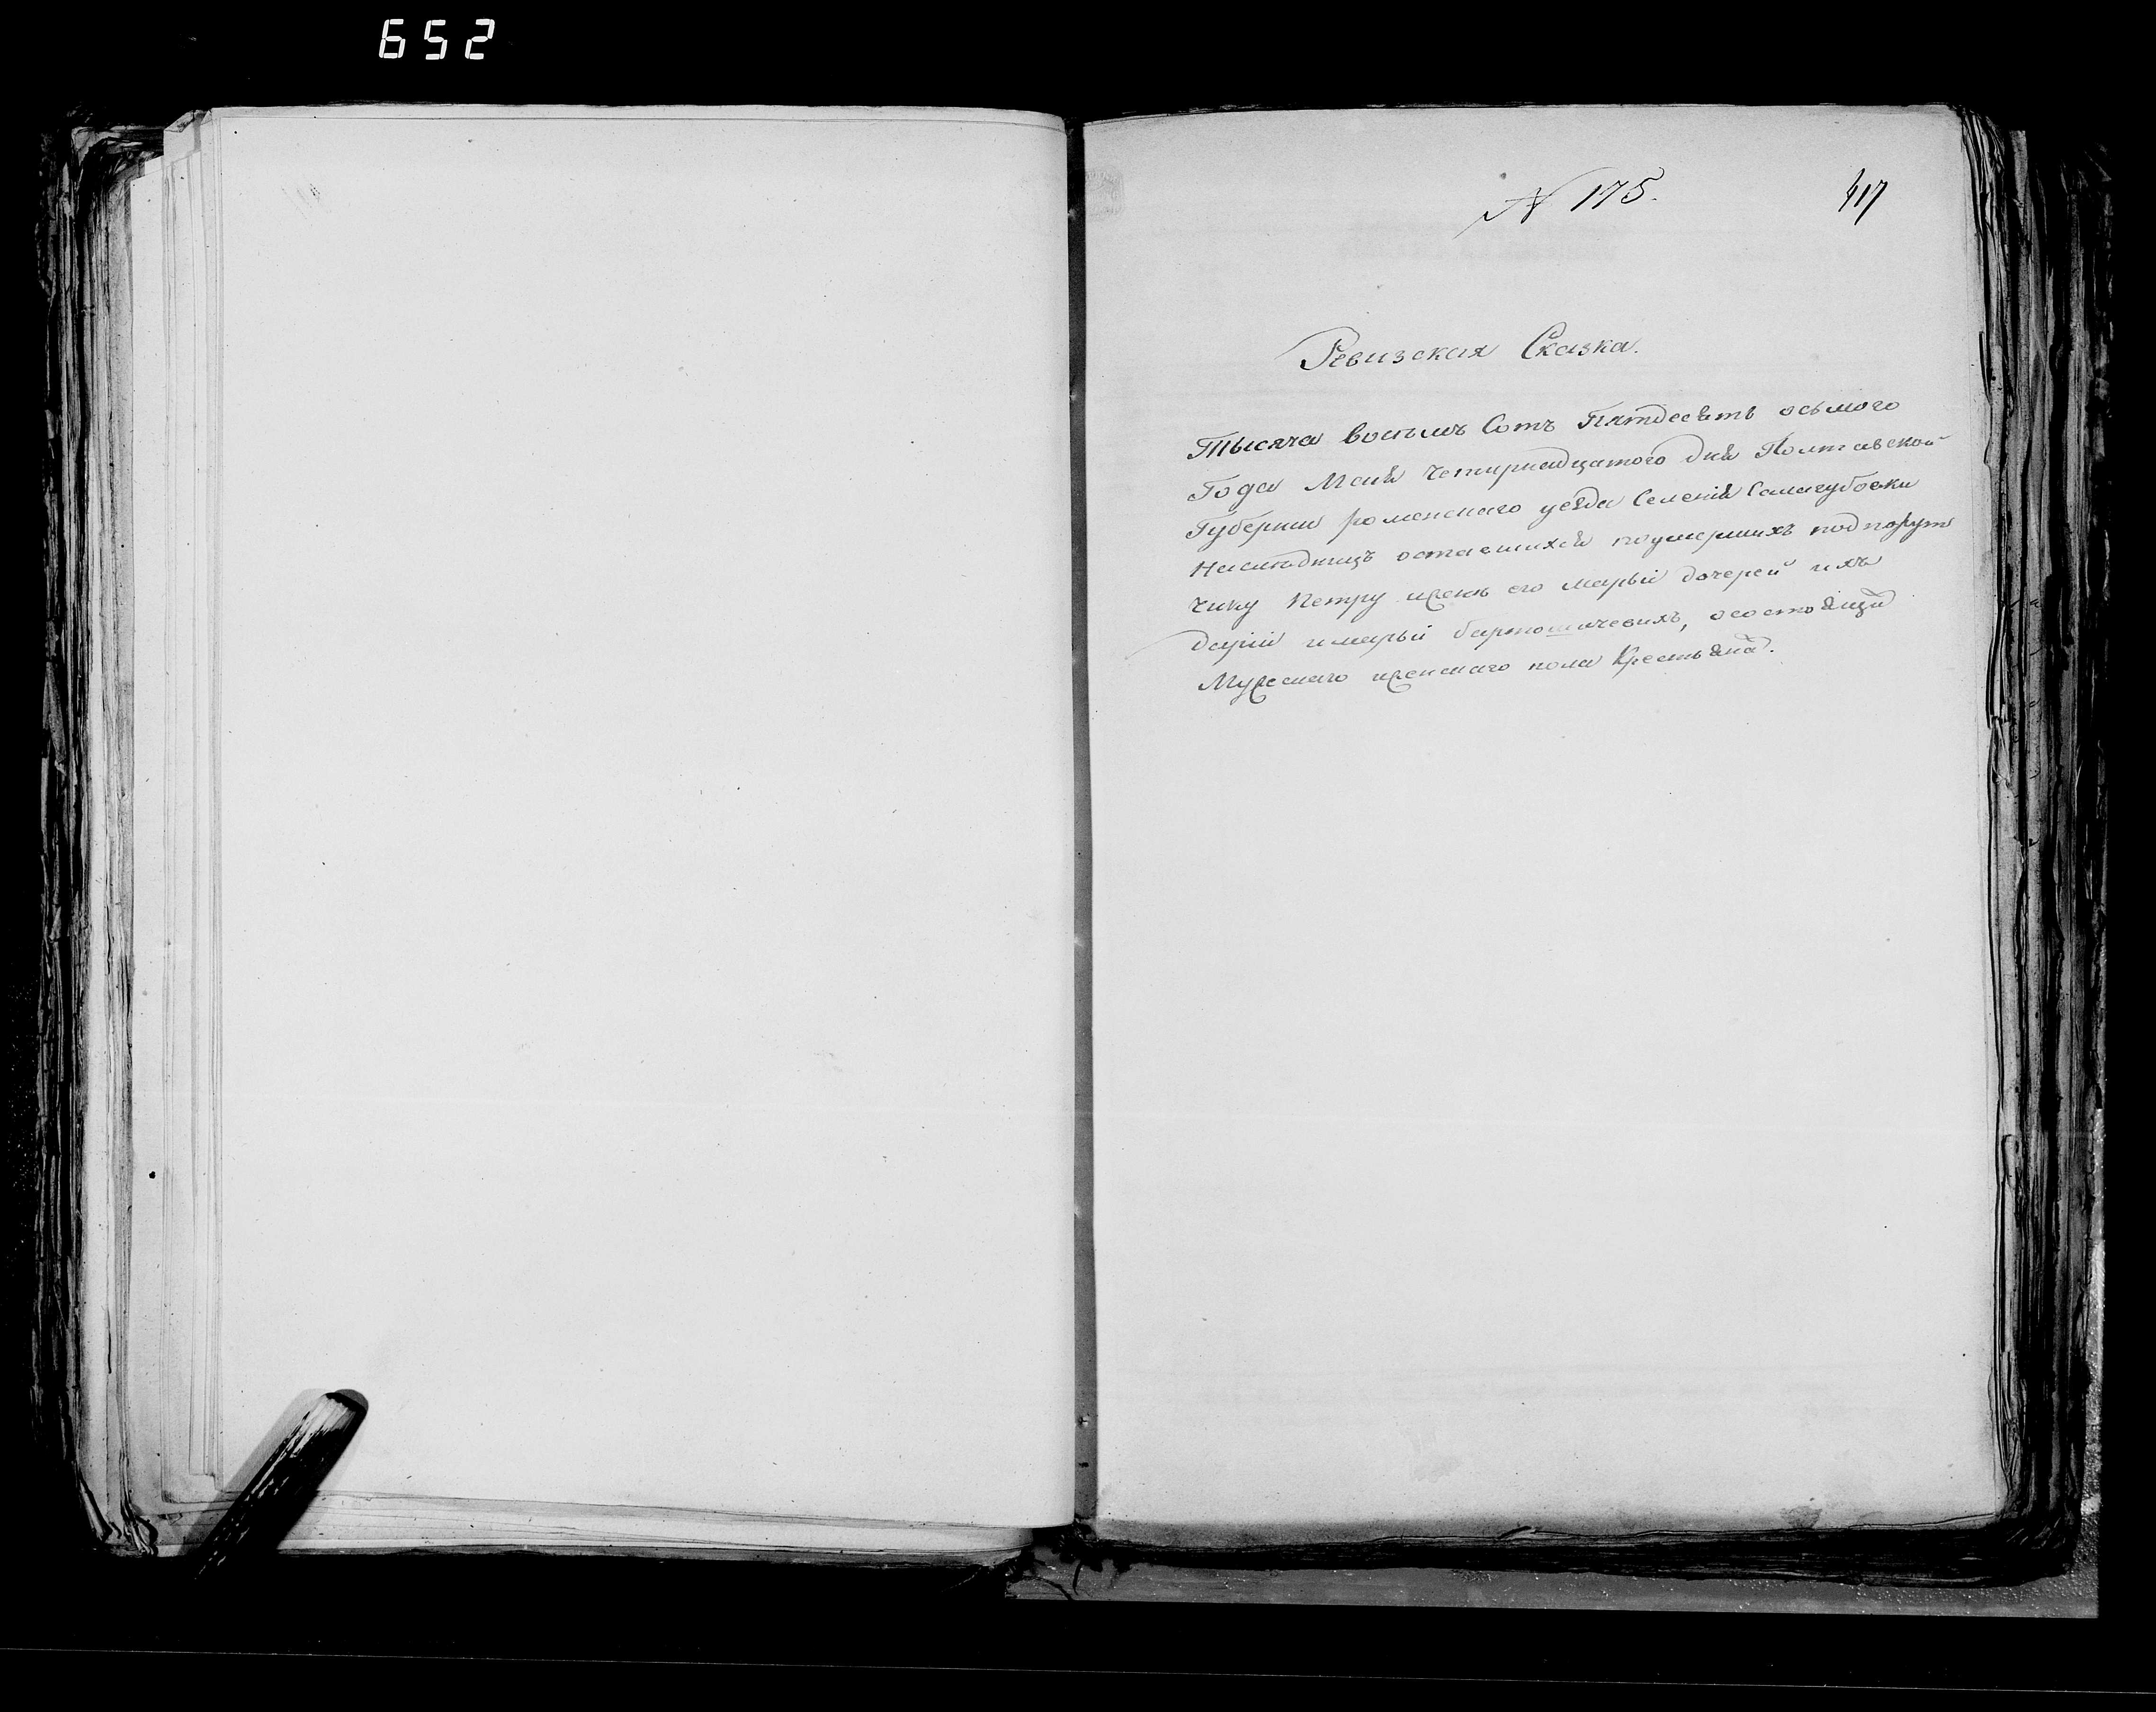 652
N 175.
417
Ревизская Сказка.
Тысяча восемъ Сотъ Пятдесятъ осьмого
Года Мая Четирнадцатого дня Полтавской
Губернии роменскаго уезда Селения Самагубовки
Наследницъ оставшихся поумершихъ подпорут
чику Петру ижене его марьи дочерей ихъ
дарии имарьи бартошичевихъ, осостоящи
Мужескаго иженскаго пола Крестьяна.